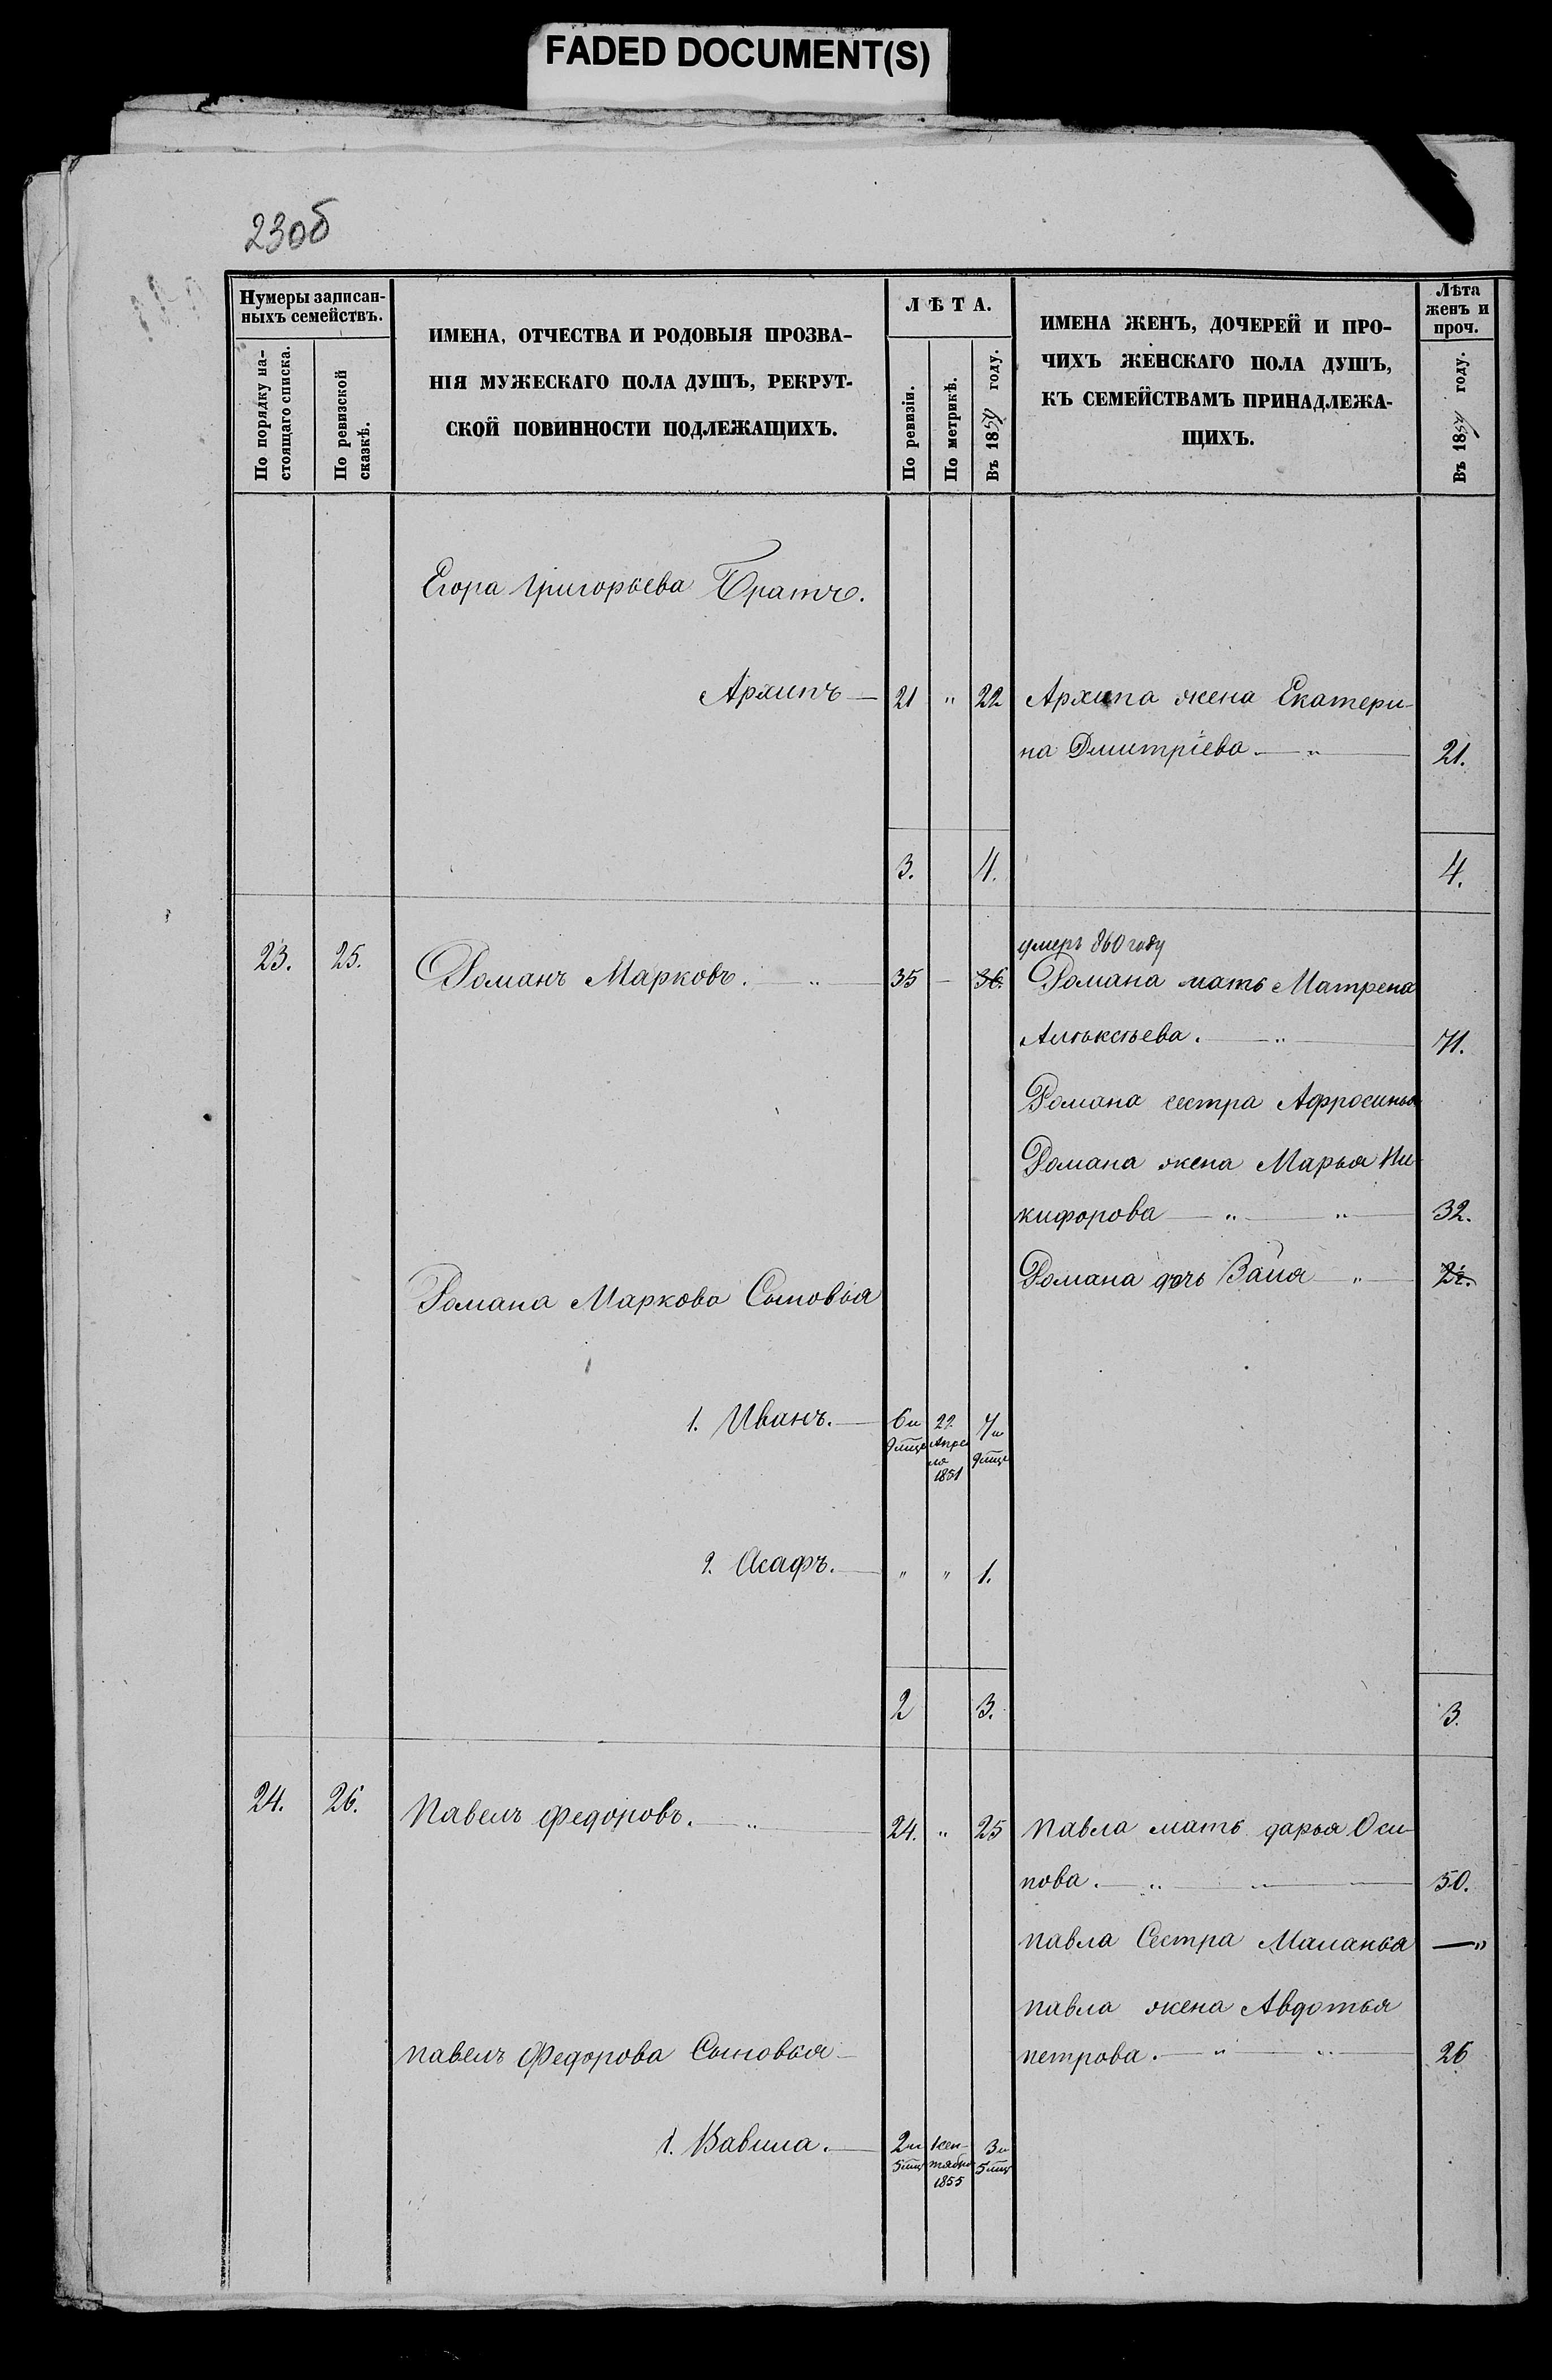 FADED DOCUMENT(S)
230б
Нумеры записан-
ныхъ семействъ.
По порядку на-
стоящаго списка.
По ревизской
сказкѣ.
ИМЕНА, ОТЧЕСТВА И РОДОВЫЯ ПРОЗВА-
НІЯ МУЖЕСКАГО ПОЛА ДУШЪ, РЕКРУТ-
СКОЙ ПОВИННОСТИ ПОДЛЕЖАЩИХЪ.
ЛѢТА.
По ревизіи.
По метрикѣ.
Въ 1859 году.
ИМЕНА ЖЕНЪ, ДОЧЕРЕЙ И ПРО-
ЧИХЪ ЖЕНСКАГО ПОЛА ДУШЪ,
КЪ СЕМЕЙСТВАМЪ ПРИНАДЛЕЖА-
ЩИХЪ.
Лѣта
женъ и
проч.
Въ 1859 году.
Егора Григорьева Братъ.
Архипъ — 21 " 22 Архипа жена Екатери-
на Дмитріева — " — 21.
3. 4. 4.
умеръ 860 году
23. 25. Романъ Марковъ. — " — 35 — 36. Романа мать Матрена
Алѣксѣева. — " — 71.
Романа сестра Афросинья
Романа жена Марья Ни-
кифорова — " — " — 32.
Романа дочь — " —
Романа Маркова Сыновья
1. Иванъ. — 6 и 22 7 и
9 мце Апре 9 мце
ля
1851
2. Асафъ. — " " 1.
2 3. 3.
24. 26. Павелъ Федоровъ. — " — 24. " 25 Павла мать дарья Оси-
пова. — " — " — 50.
павла Сестра Маланья — "
павла жена Авдотья
павелъ Федорова Сыновья — петрова. — " — " — 26
1. Вавила. — 2 и Сен- 3 и
5 мц тября 5 мц
1855